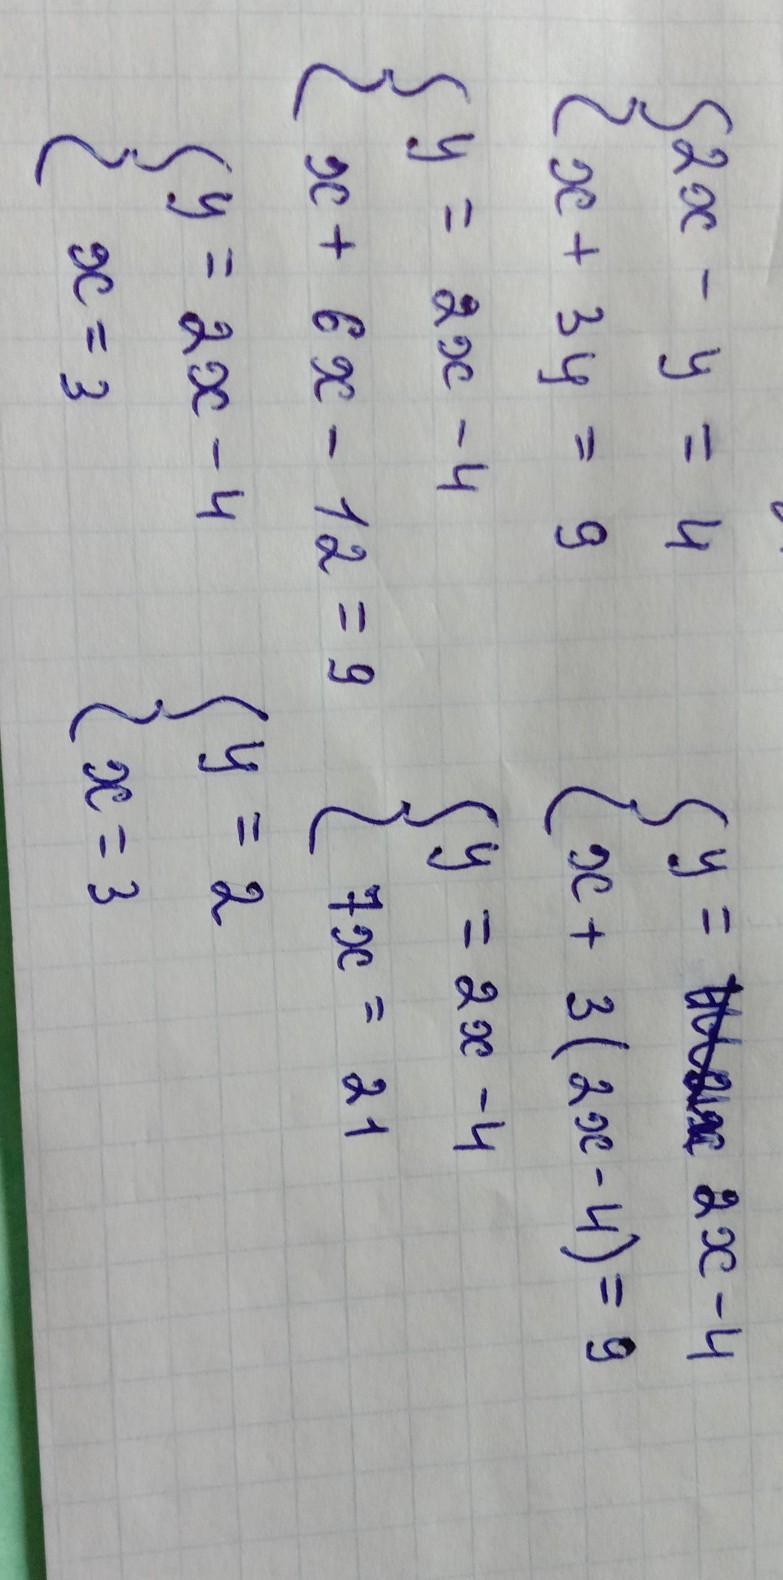 2x - y = 4
x + 3y = 9
y = 2x - 4
x + 3(2x - 4) = 9
y = 2x - 4
x + 6x - 12 = 9
y = 2x - 4
7x = 21
y = 2x - 4
x = 3
y = 2
x = 3